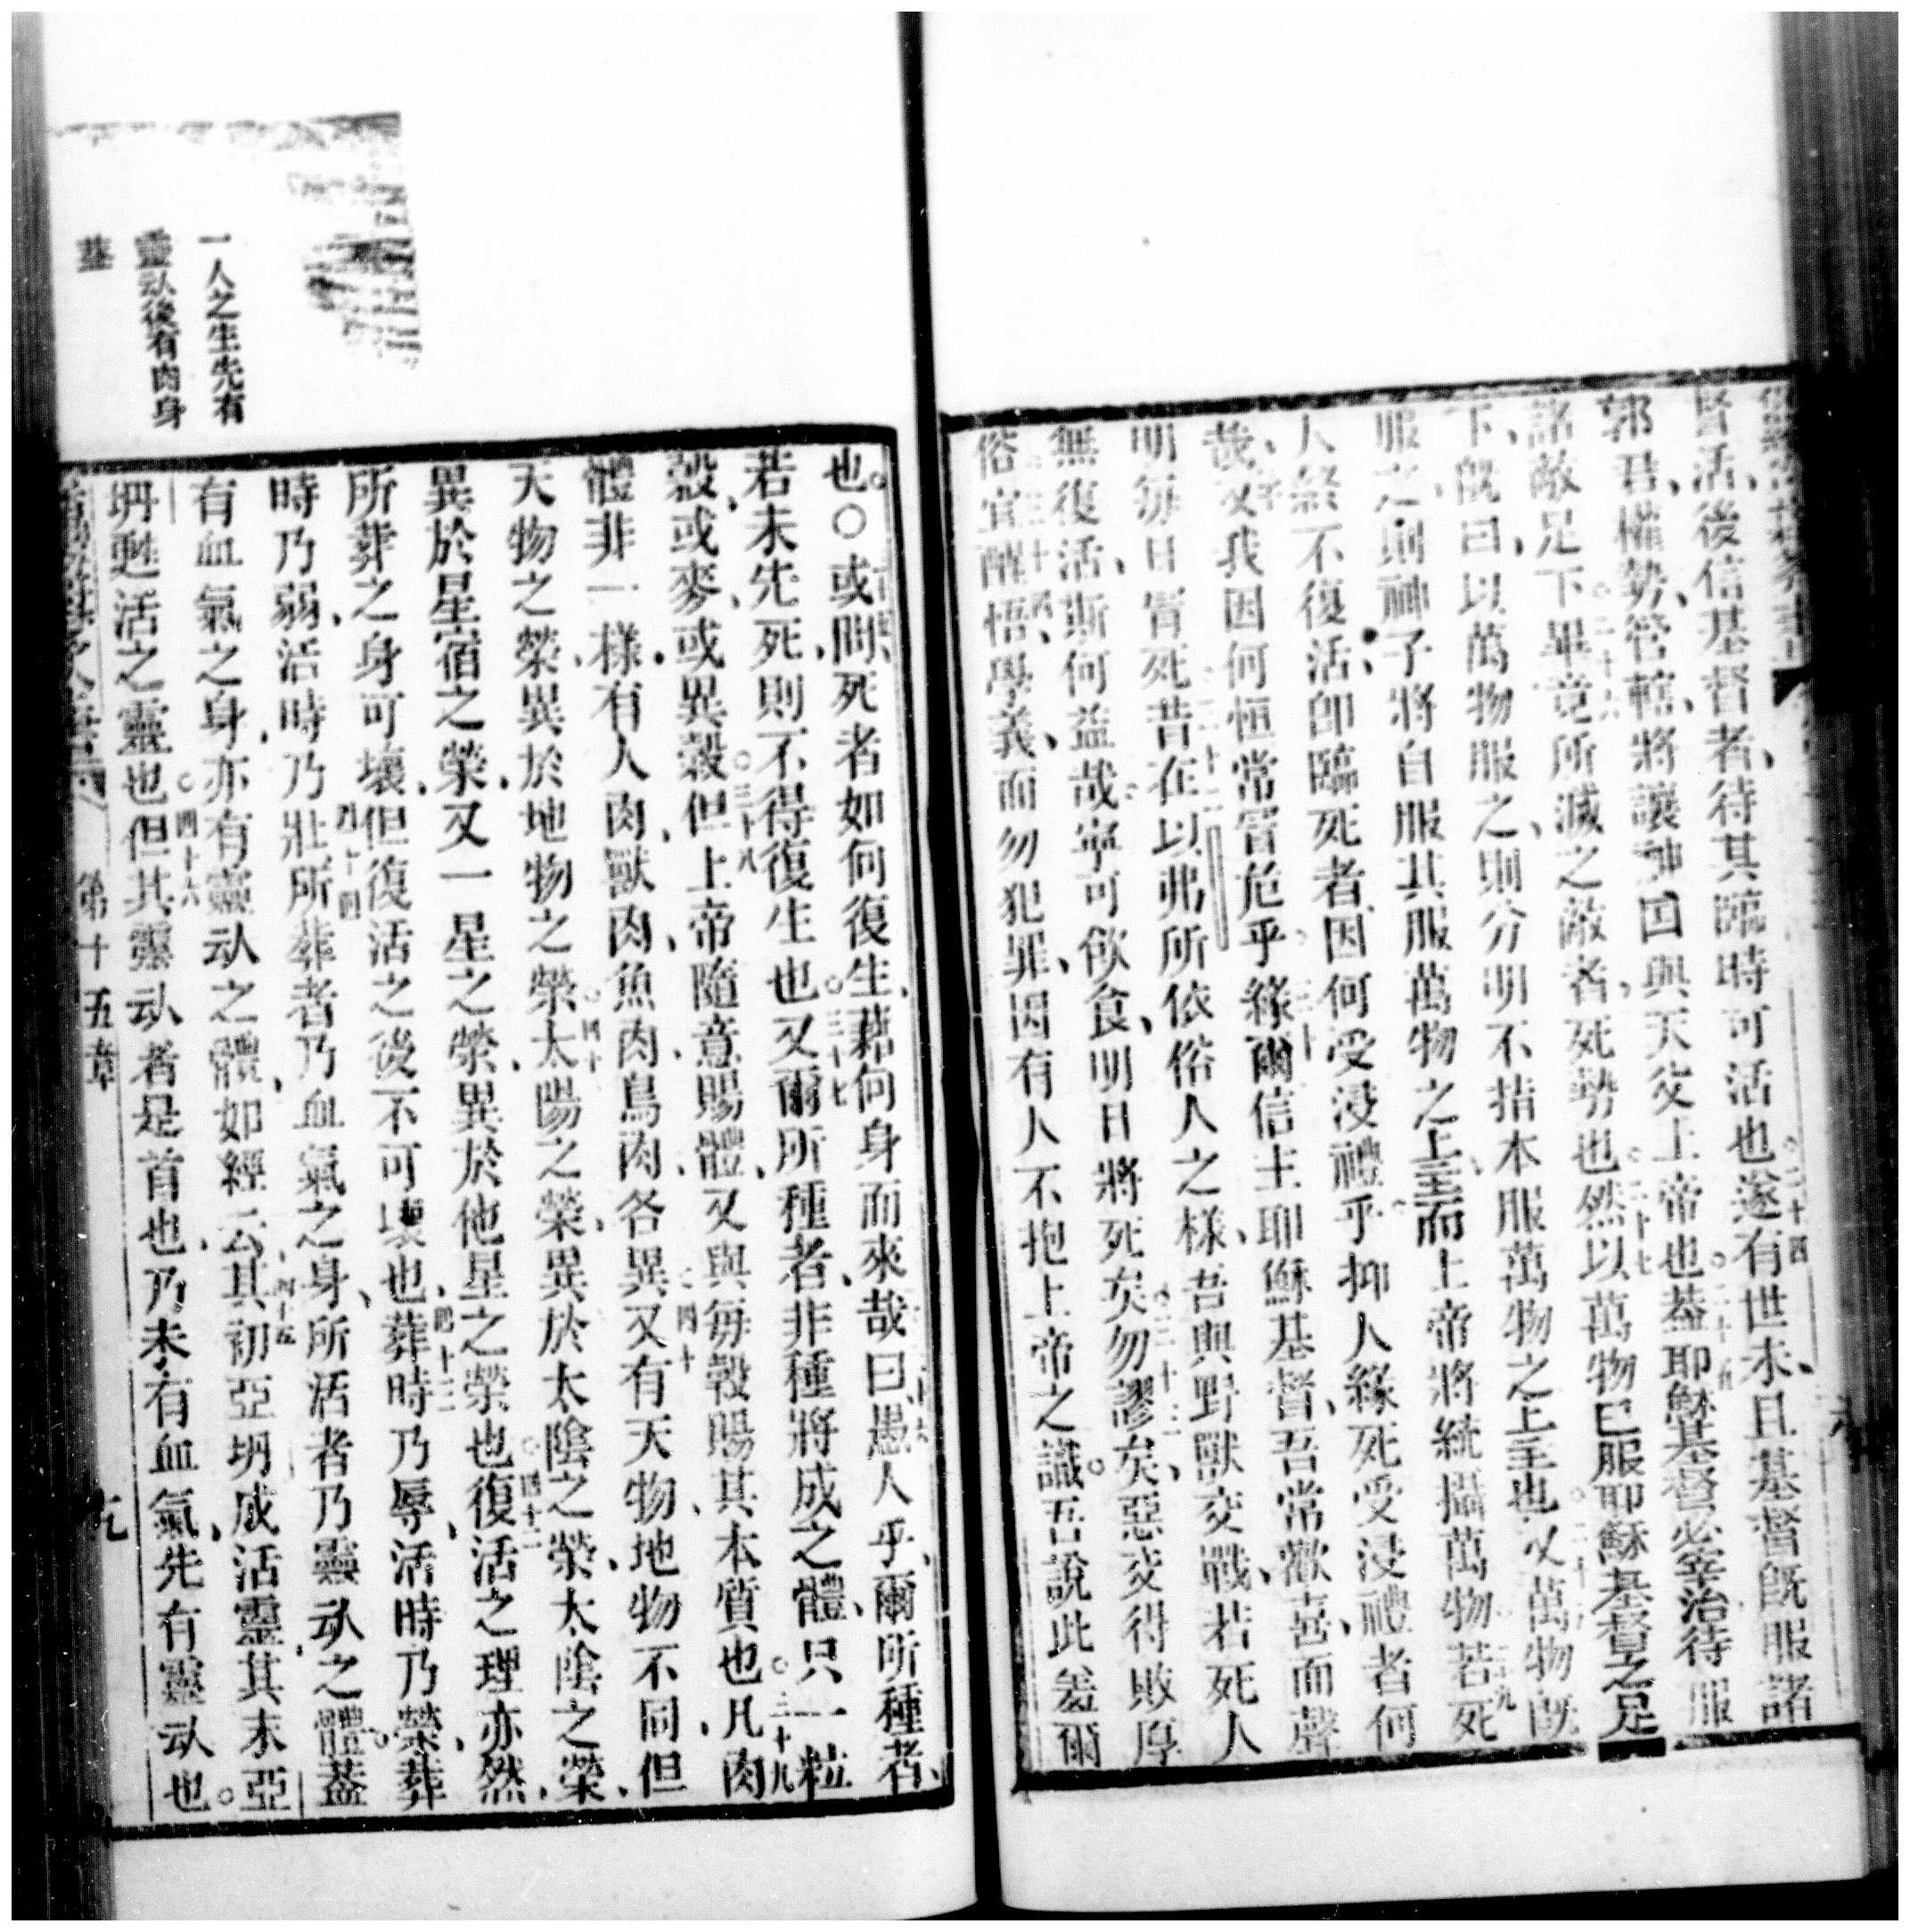 督活、後信基督者、待其臨時可活也○二十四遂有世末、且基督旣服諸
郭君、權勢、管轄、將讓神囯與天父上帝也○二十五葢耶穌基督必宰治待服
諸敵足下○二十六畢竟所滅之敵者、死勢也○二十七然以萬物已服耶穌基督之足
下、旣曰、以萬物服之、則分明不指本服萬物之上主也○二十八又萬物旣
服之、則神子將自服其服萬物之上主、而上帝將統攝萬物○二十九若死
人終不復活、卽臨死者、因何受浸禮乎、抑人緣死受浸禮者何
哉、○三十又我因何恒常冒危乎○三十一緣爾信主耶穌基督、吾常歡喜、而聲
明每日冒死○三十二昔在以弗所依俗人之樣、吾與野獸交戰、若死人
無復活、斯何益哉、寧可飲食、明日將死矣○三十三勿謬矣、惡交得敗厚
俗○三十四宜醒悟、學義、而勿犯罪、因有人不抱上帝之識。吾說此羞爾
也。○或問、死者如何復生、藉何身而來哉○三十六曰、愚人乎、爾所種者、
若未先死、則不得復生也○三十七又爾所種者、非種將成之體、只一粒
穀、或麥、或異穀○三十八但上帝隨意賜體、又與每穀賜其本質也○三十九凡肉
體非一樣、有人肉、獸肉、魚肉、鳥肉、各異○四十又有天物、地物不同、但
天物之榮、異於地物之榮○四十一太陽之榮、異於太陰之榮、太陰之榮、
異於星宿之榮、又一星之榮、異於他星之榮也○四十二復活之理亦然、
所葬之身可壞、但復活之後不可壞也、○四十三葬時乃辱、活時乃榮、葬
時乃弱、活時乃壯○四十四所葬者乃血氣之身、所活者乃靈㺯之體。葢
有血氣之身、亦有靈㺯之體、○四十五如經云、其初亞坍成活靈、其末亞
坍甦活之靈也○四十六但其靈㺯者是首也、乃未有血氣、先有靈㺯也。
第十五章
一人之生先有
靈㺯後有肉身